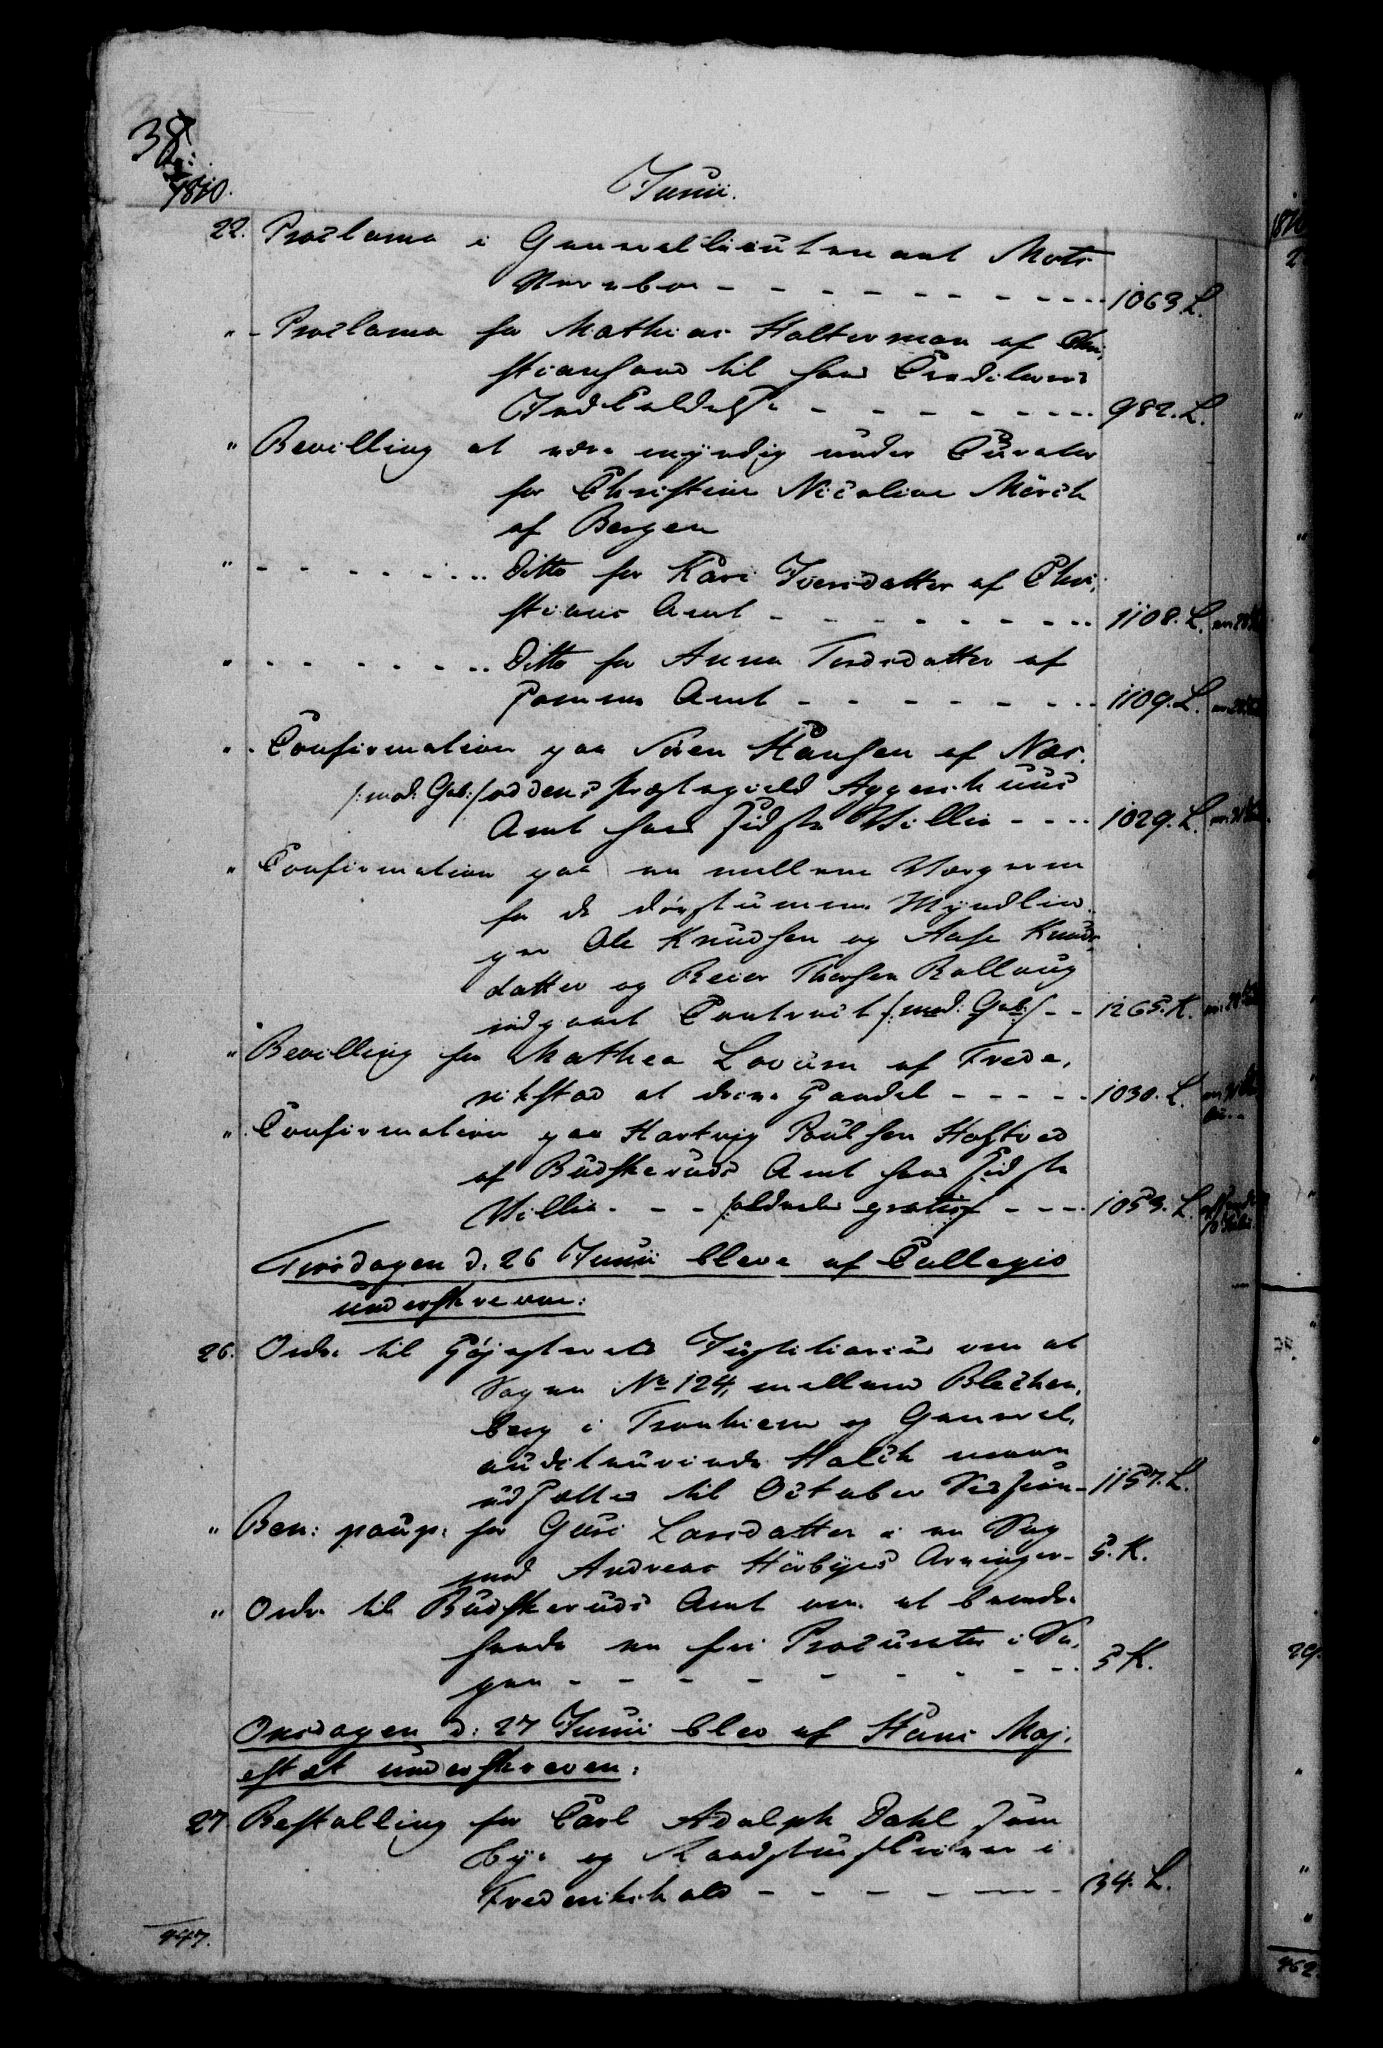 38
1810.
Junii.
22. Proclama i Generallieutenant Motz
Stervboe - - - - - - - - - 1063 L.
" - Proclama for Mathias Halterman af Chri,
stiansand til hans Creditorers
Indkaldelse - - - - - - - 982. L.
" Bevilling at være myndig under Curator
for Christine Nicoline Mörch
af Bergen
" - - - - - - Ditto for Kari Iversdatter af Chri,
stians Amt - - - - - - - - - 1108. L.
" - - - - - - Ditto for Anna Tordsdatter af
Samme Amt - - - - - - - 1109. L.
" - Confirmation paa Sören Hansen af Næs-
/: med Geb: / oddens Præstegield Aggershuus
Amt hans sidste Villie - - - - 1029. L.
" Confirmation paa en mellem Værgerne
for de døvstumme Myndlin-
ge Ole Knudsen og Aase Knuds-
datter og Reier Thorsen Rallaug
indgaaet Contract /: med: Geb: / - - 1265. K.
" Bevilling for Mathea Lovum af Frede,
rikstad at drive Handel - - - - - 1030. L.
" Confirmation paa Hartvig Poulsen Hoftved
af Budskeruds Amt hans sidste
Villie - - - /aldeeles gratis/ - - - 1053. L.
Tirsdagen d. 26 Junii bleve af Collegio
underskrevne:
26. Ordre til Højesterets Justitiarius om at
Sagen No 124, mellem Blechen,
berg i Tronhiem og General,
auditeurinde Halck maae
udsættes til October Session - 1157. L.
" Ben: paup: for Guri Larsdatter i en Sag
mod Andreas Hörbyes Arvinger - 5. K.
" Ordre til Budskeruds Amt om at beord-
hende en fri Procurator i Sa,
gen - - - - - - - - 5 K.
Onsdagen d: 27 Junii blev af Hans Maj,
estæt underskreven:
27 Bestalling for Carl Adolph Dahl som
Bye og Raadstueskriver i
Frederikshald - - - - - - - 34. L.
447.